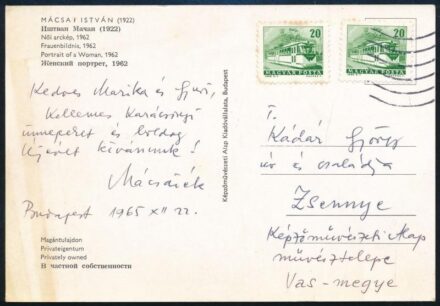 MÁCSAI ISTVÁN (1922)
Иштван Мачаи (1922)
Női arckép, 1962
Frauenbildnis, 1962
Portrait of a Woman, 1962
Женский портрет, 1962
Kedves Marika és Gyuri,
Kellemes Karácsonyi
ünnepeket és boldog
Ujévet kívánunk!
Mácsaiék
Budapest 1965 XII 22.
Magántulajdon
Privateigentum
Privately owned
В частной собственности
Képzőművészeti Alap Kiadóvállalata, Budapest
20
MAGYAR POSTA
20
MAGYAR POSTA
T.
Kádár György
úr és családja
Zsennye
Képzőművészeti Alap
művésztelepe
Vas-megye